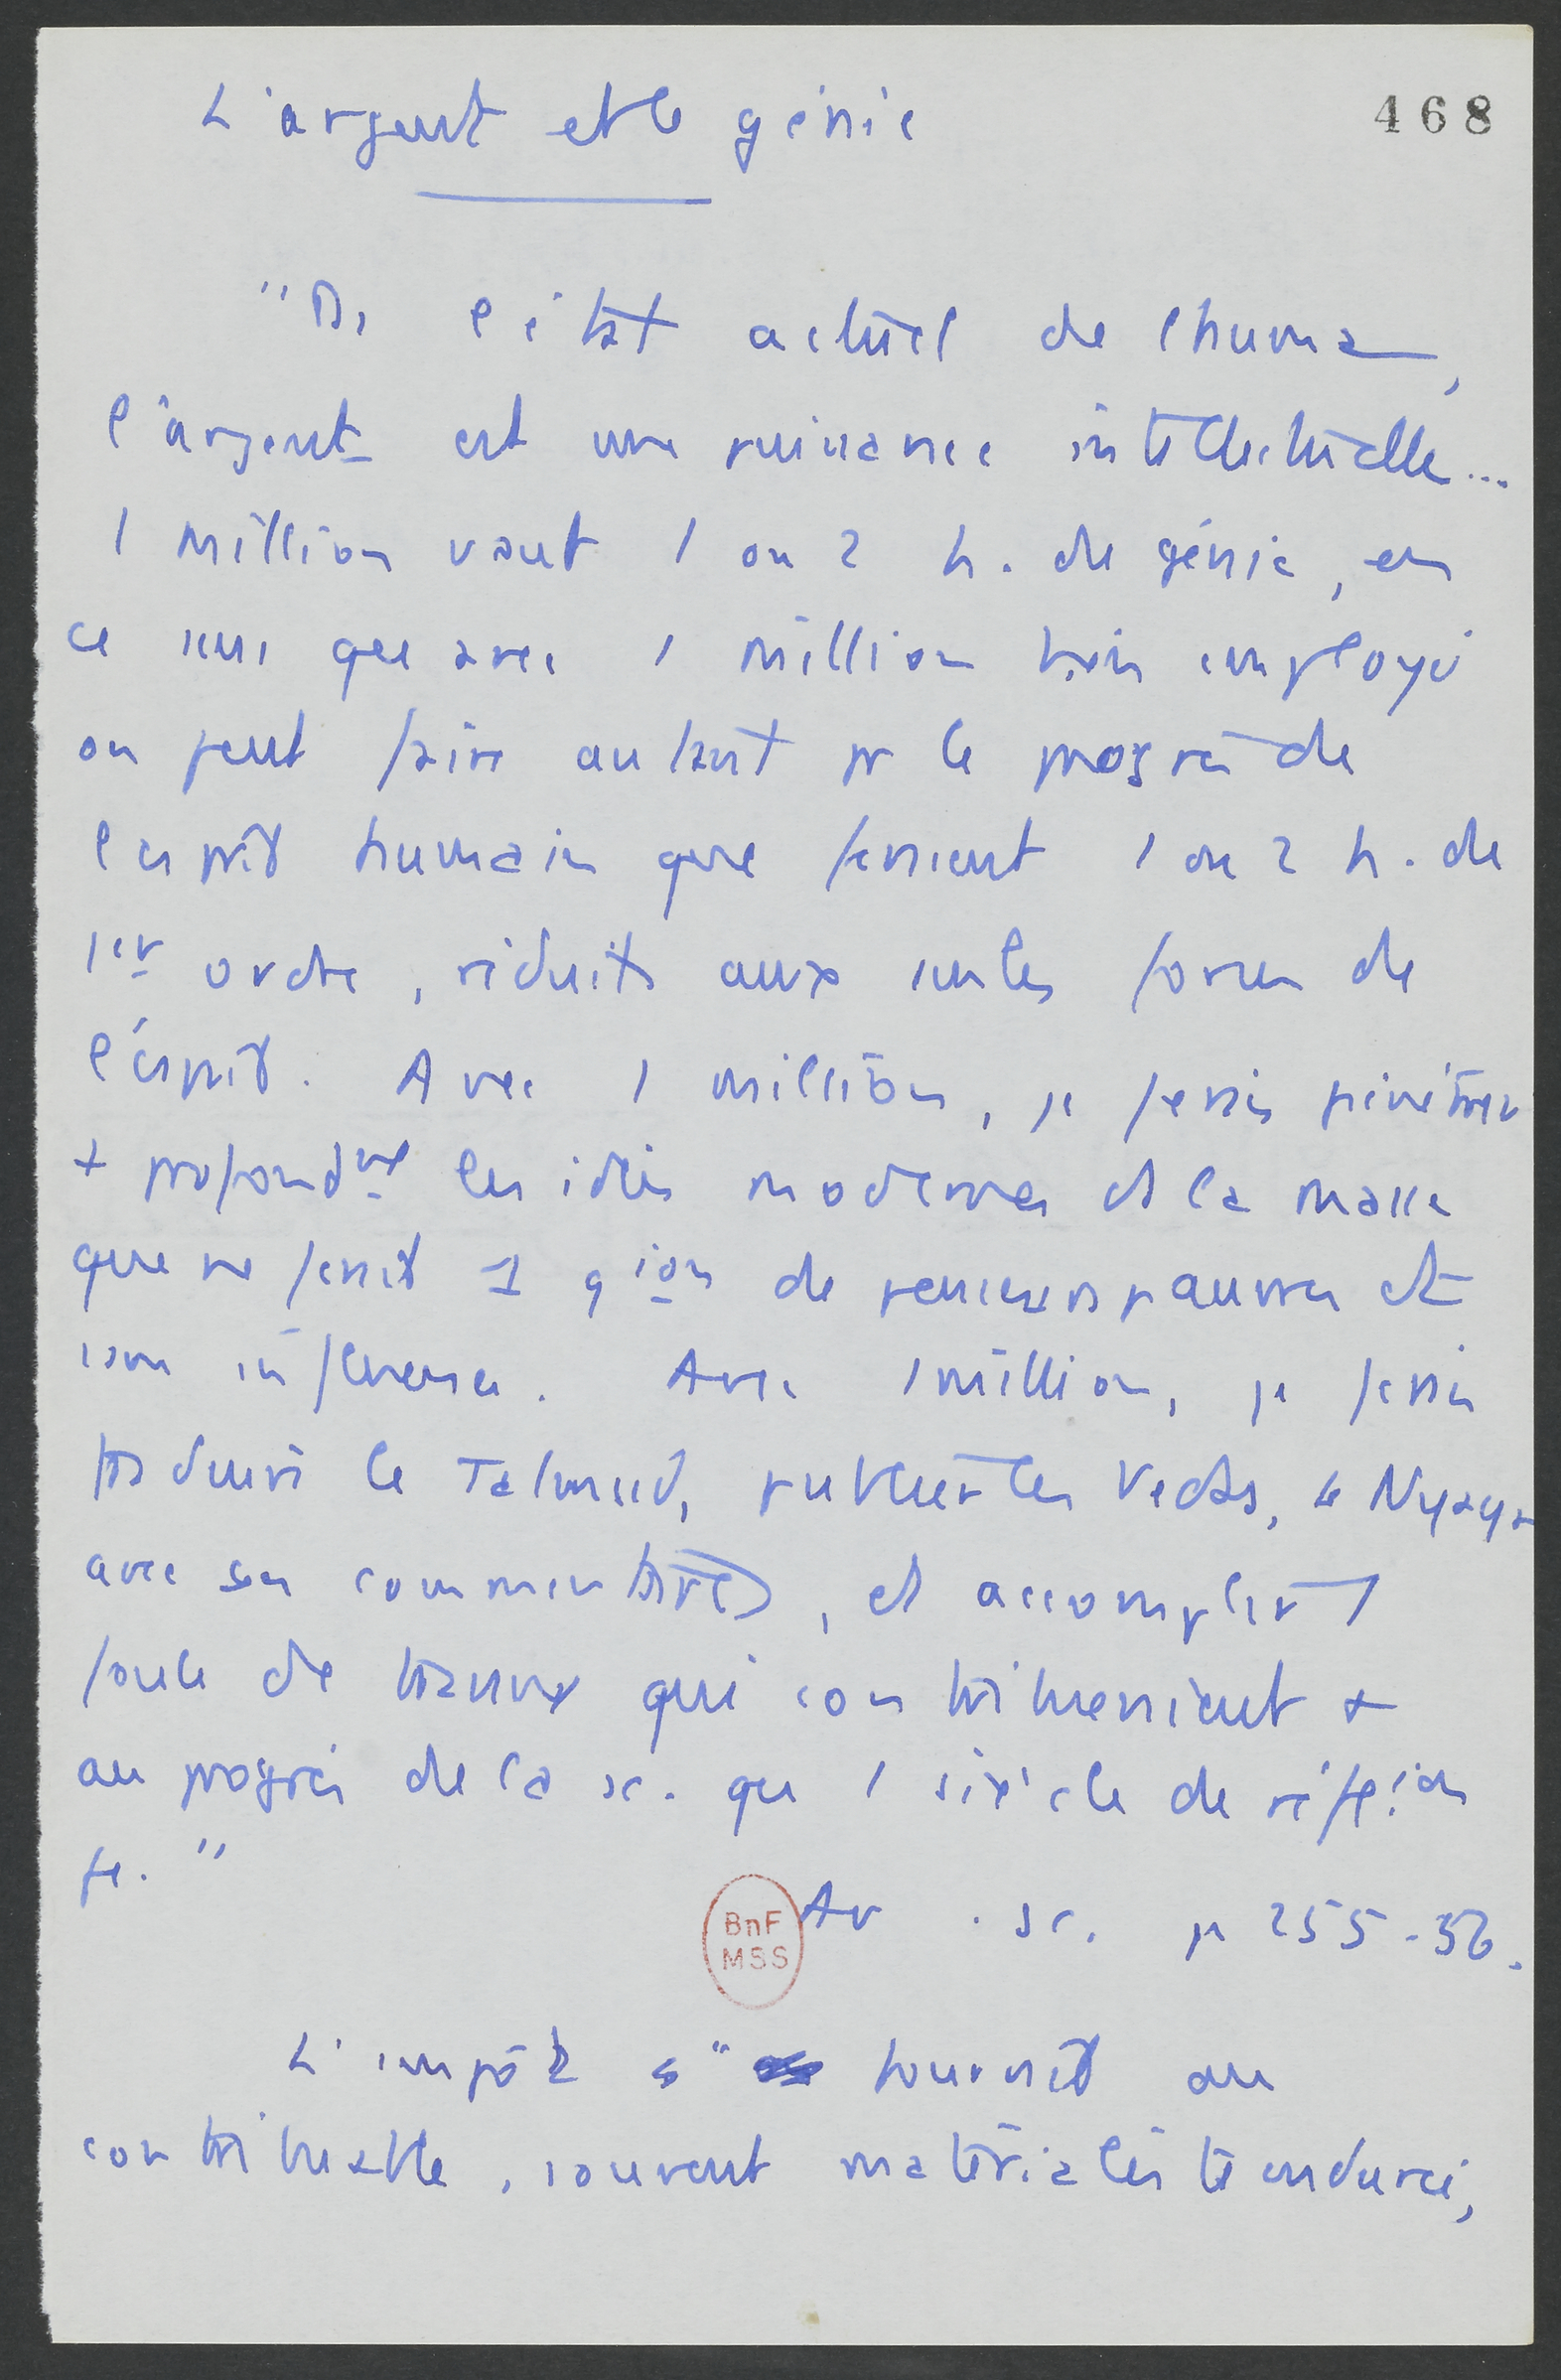 L'argent et le génie
468
"Ds l'état actuel de l'huma,
l'argent est une puissance intellectuelle...
1 million vaut 1 ou 2 h. de génie, en
ce sens que avec 1 million bien employé
on peut faire autant pr le progrès de
l'esprit humain que feraient 1 ou 2 h. de
1er ordre, réduits aux seules forces de
l'esprit. Avec 1 million, je ferais pénétrer
+ profondmt les idées modernes ds la masse
que ne ferait 1 gion de penseurs pauvres et
sans influence. Avec 1 million, je ferais
traduire le Talmud, publier les Vedas, le Nyaya
avec ses commentaires, et accomplir 1
foule de travaux qui contribueraient +
au progrès de la sc. que 1 siècle de réflexion
"
Av. sc. p 255-56.
L'impôt " fournit au
contribuable, souvent matérialiste endurci,
BnF
MSS